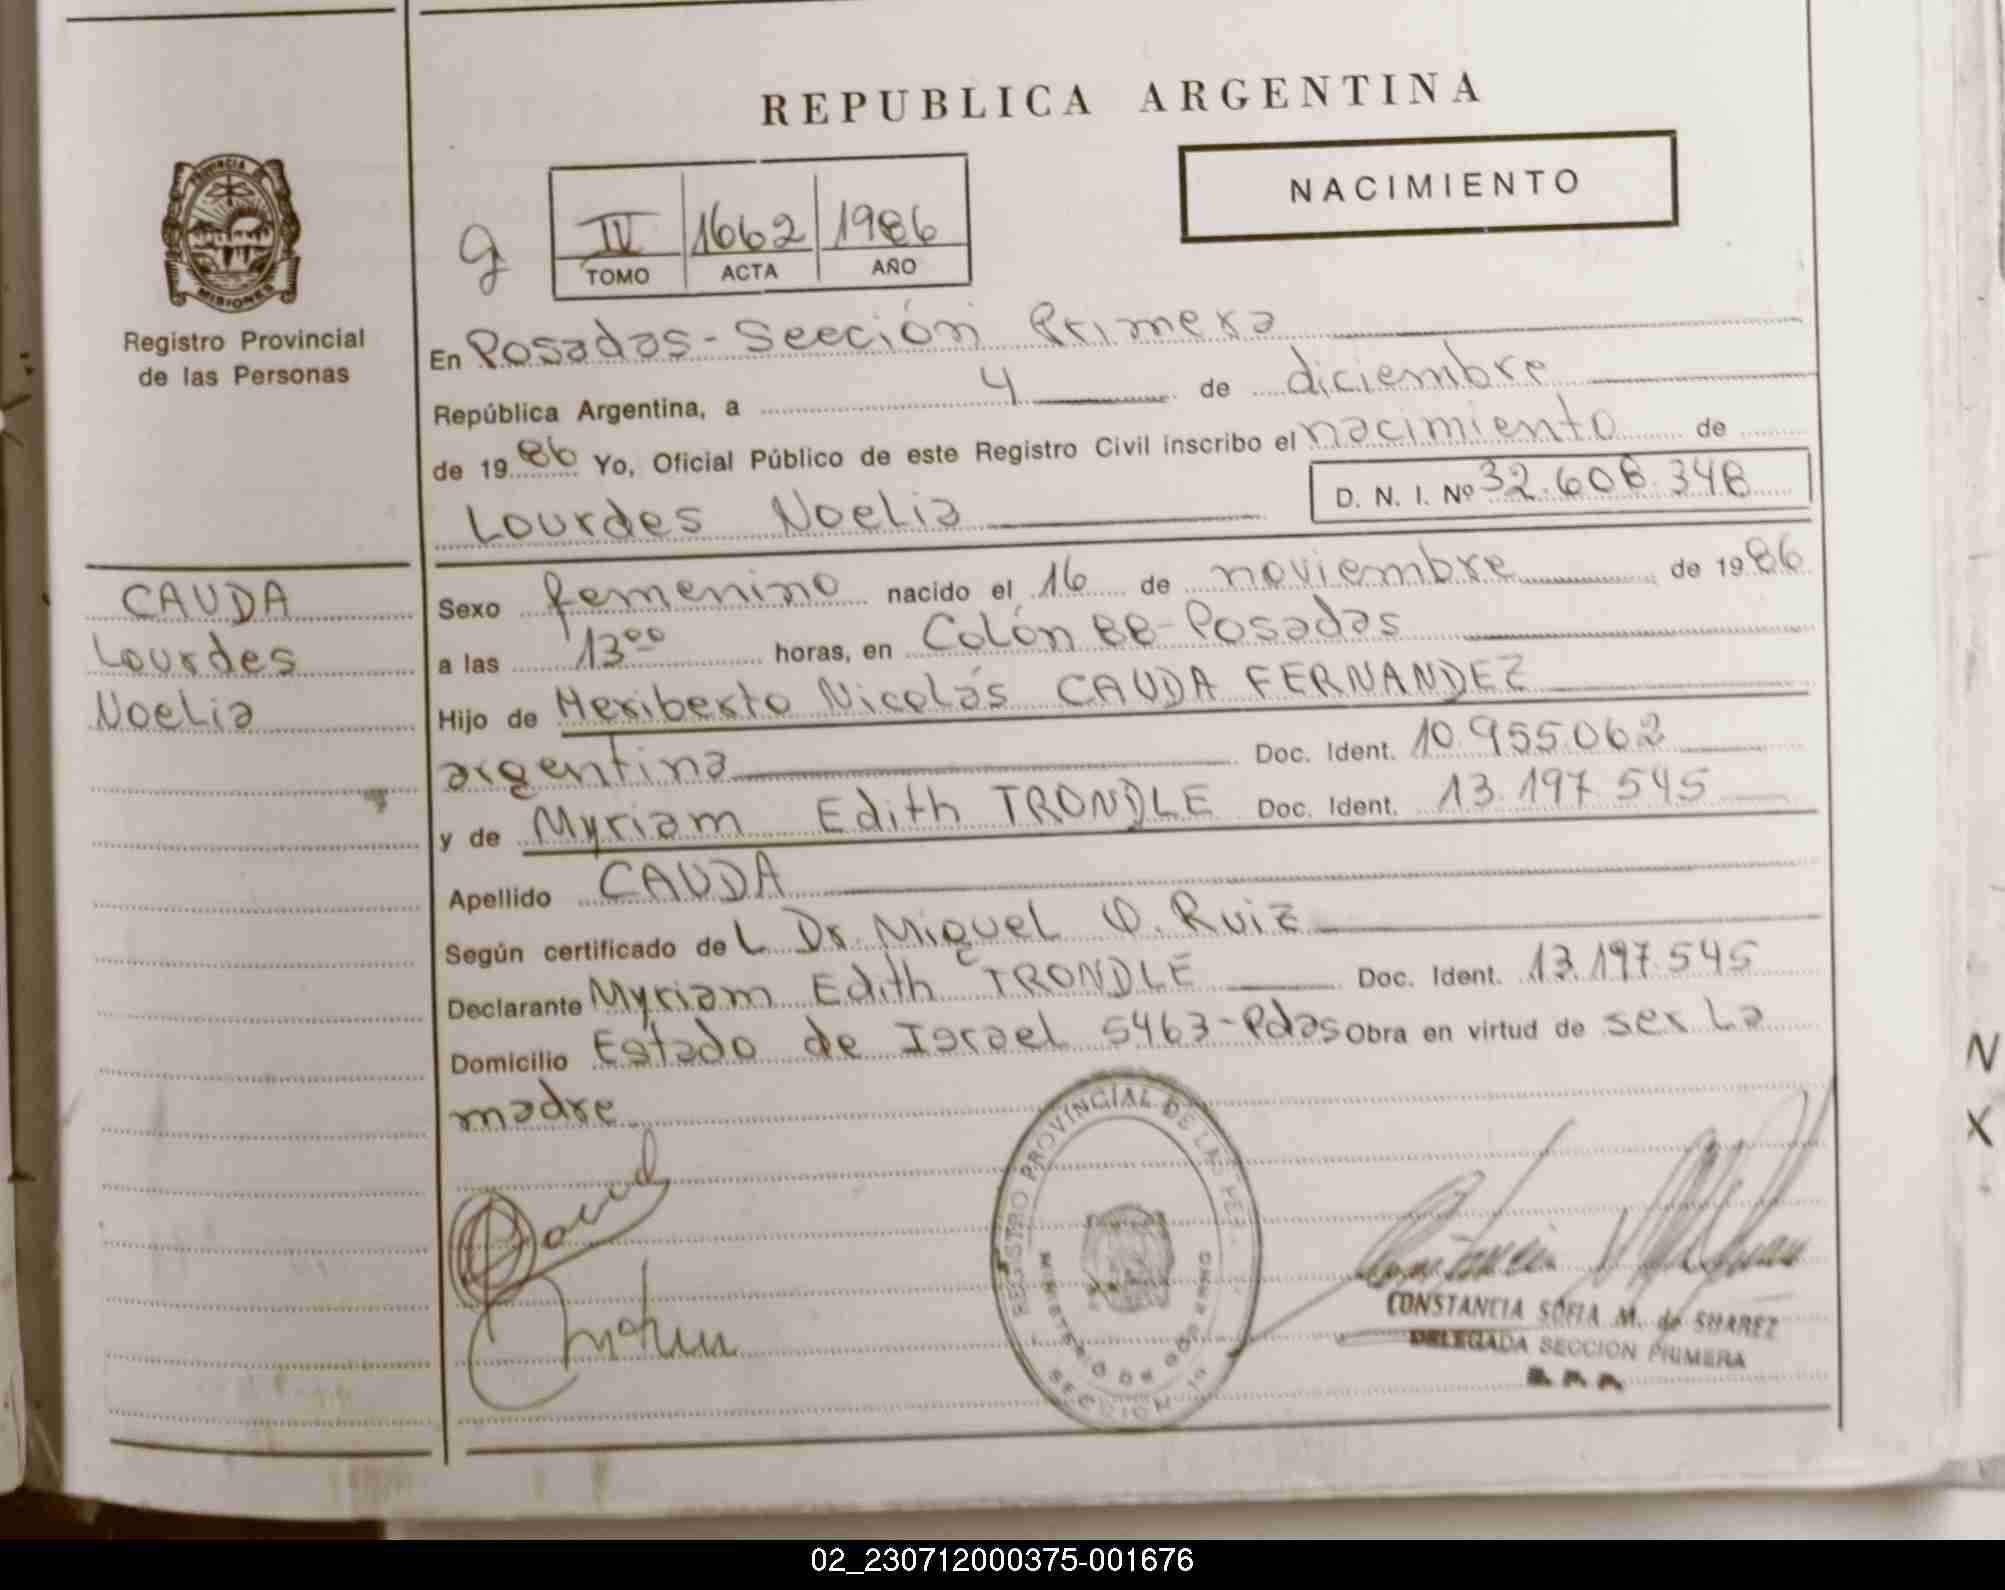 REPUBLICA ARGENTINA
NACIMIENTO
PROVINCIA DE
MISIONES
Registro Provincial
de las Personas
g
IV 1662 1986
TOMO ACTA AÑO
En Posadas - Sección Primera
República Argentina, a 4 de diciembre
de 1986 Yo, Oficial Público de este Registro Civil inscribo el nacimiento de
Lourdes Noelia D. N. I. Nº 32.608.348
CAUDA
Lourdes
Noelia
Sexo femenino nacido el 16 de noviembre de 1986
a las 13⁰⁰ horas, en Colón 88 - Posadas
Hijo de Heriberto Nicolás CAUDA FERNANDEZ
argentina Doc. Ident. 10.955.062
y de Myriam Edith TRONDLE Doc. Ident. 13.197.545
Apellido CAUDA
Según certificado del Dr. Miguel O. Ruiz
Declarante Myriam Edith TRONDLE Doc. Ident. 13.197.545
Domicilio Estado de Israel 5463 - Pdas Obra en virtud de ser la
madre
REGISTRO PROVINCIAL DE LAS PER
MINISTERIO DE GOBIERNO
SECCION 1ª
CONSTANCIA SOFIA M. de SUAREZ
DELEGADA SECCION PRIMERA
N
X
02_230712000375-001676